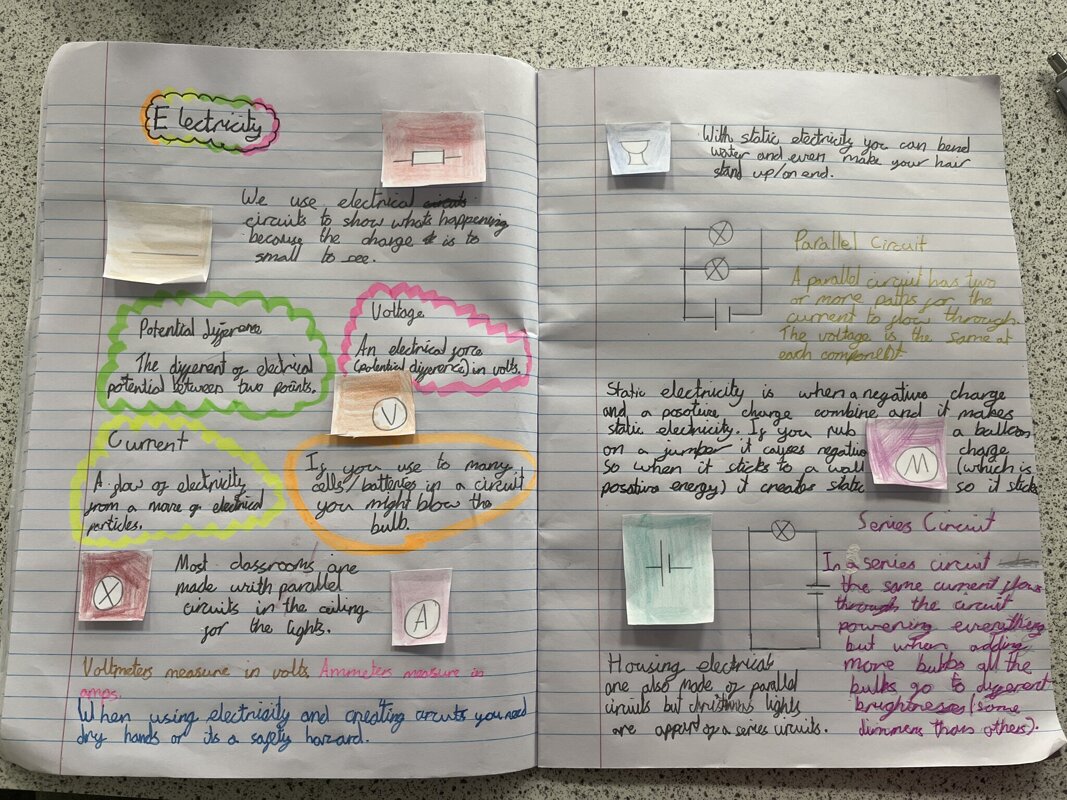 Electricity
We use electrical circuits
circuits to show whats happening
because the charge is to
small to see.
Potential difference
The different of electrical
potential between two points.
Voltage
An electrical force
(potential difference) in volts.
V
Current
A flow of electricity
from a move of electrical
particles.
If you use to many
cells/batteries in a circuit
you might blow the
bulb.
X
Most classrooms are
made with parallel
circuits in the ceiling
for the lights.
A
Voltmeters measure in volts. Ammeters measure in
amps.
When using electricity and creating circuits you need
dry hands or its a safety hazard.
With static electricity you can bend
water and even make your hair
stand up/on end.
Parallel Circuit
A parallel circuit has two
or more paths for the
current to flow through.
The voltage is the same at
each component
Static electricity is when a negative charge
and a posotive charge combine and it makes
static electricity. If you rub a balloon
on a jumper it causes negative charge
so when it sticks to a wall (which is
posotive energy) it creates static so it sticks
M
Series Circuit
In a series circuit
the same current flows
through the circuit
powering everything
but when adding
more bulbs all the
bulbs go to different
brightness (some
dimmers than others).
Housing electrical
are also made of parallel
circuits but christmas lights
are appart of a series circuits.